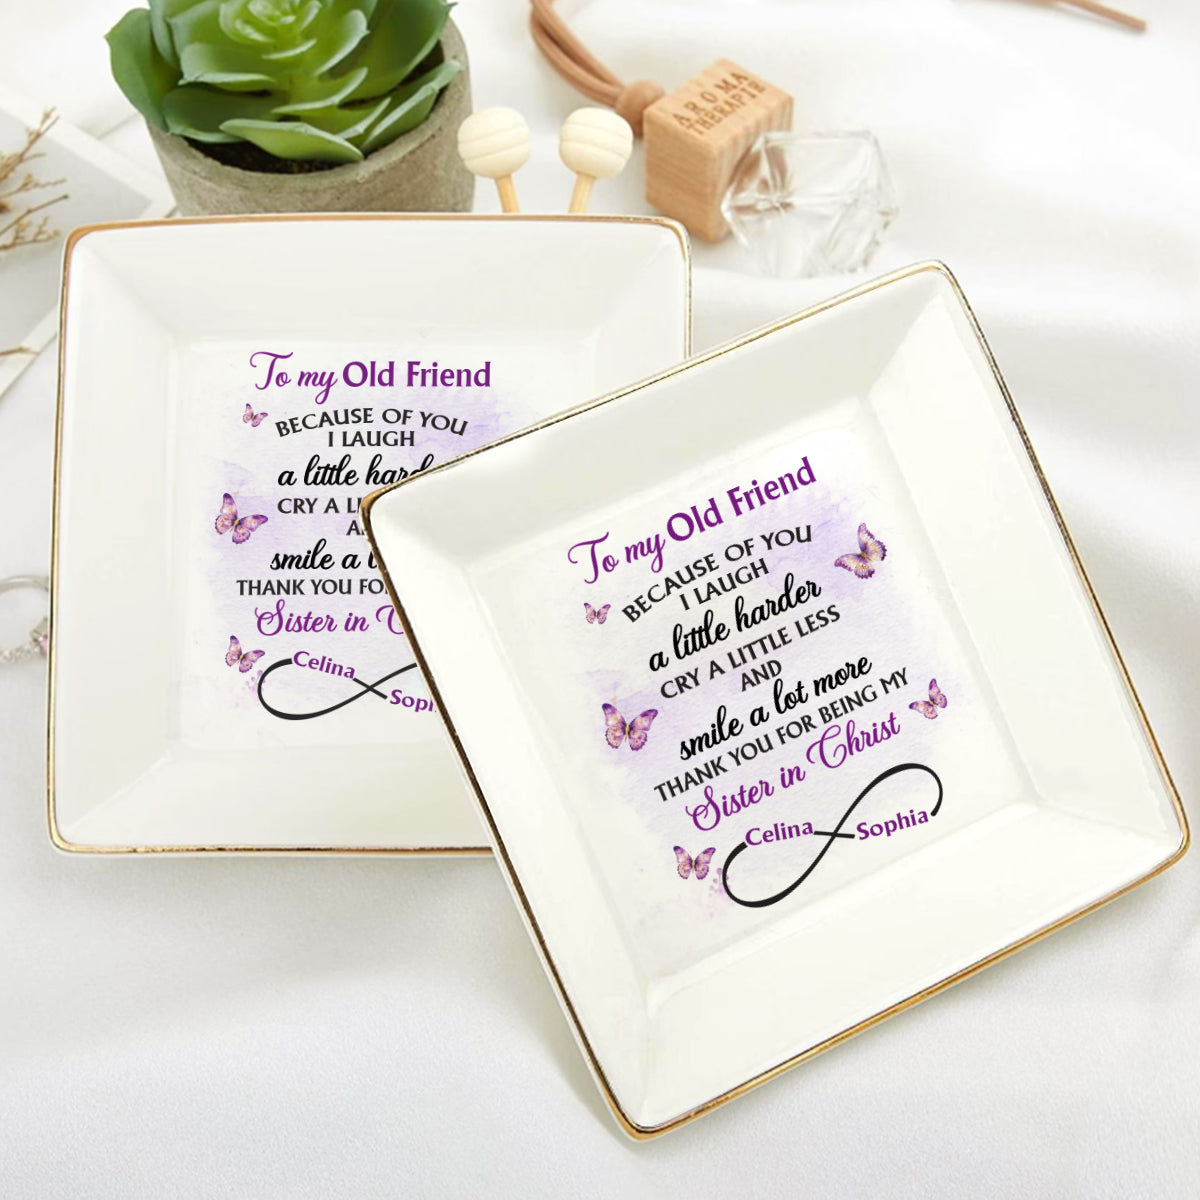 AROMA
THERAPIE
To my Old Friend
BECAUSE OF YOU
I LAUGH
a little
CRY A
smile a
THANK YOU
Sister in
Celina
To my Old Friend
BECAUSE OF YOU
I LAUGH
a little harder
CRY A LITTLE LESS
AND
smile a lot more
THANK YOU FOR BEING MY
Sister in Christ
Celina Sophia